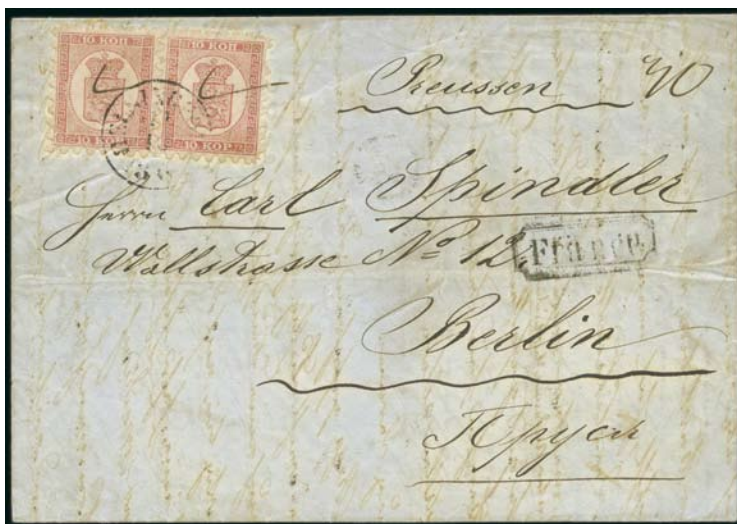 10 КОП 10 КОП
10 КОР 10 КОР
Preussen
Herrn Carl Spindler
Wallstrasse No 12
Franco
Berlin
Пруси